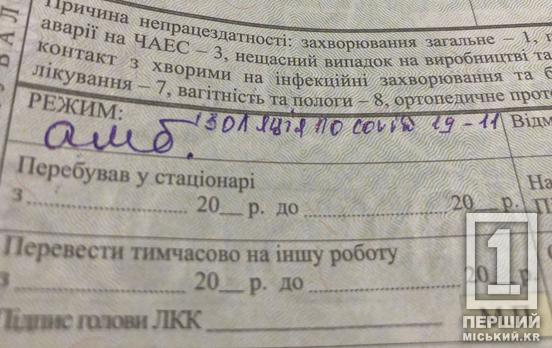 Причина непрацездатності: захворювання загальне – 1,
аварії на ЧАЕС – 3, нещасний випадок на виробництві та
контакт з хворими на інфекційні захворювання та
лікування – 7, вагітність та пологи – 8, ортопедичне
РЕЖИМ:
амб. ізоляція по covid 19 - 11
Перебував у стаціонарі
з 20__ р. до 20__ р.
Перевести тимчасово на іншу роботу
з 20__ р. до 20 р.
Підпис голови ЛКК
1
ПЕРШИЙ
МІСЬКИЙ.KR